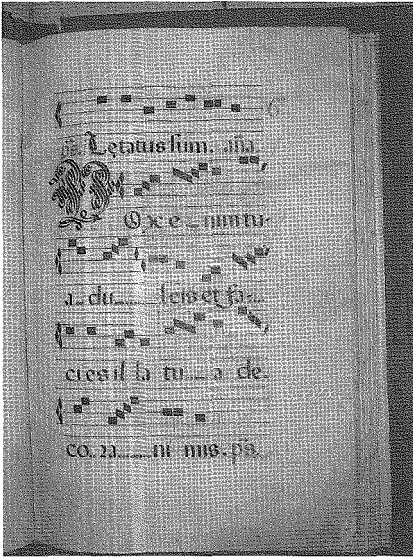 ps. Letatus sum. aña.
VOx e_ nim tu-
a_ du___ lcis et fa-
cies il la tu__ a de-
co. ra___ ni mis. ps.